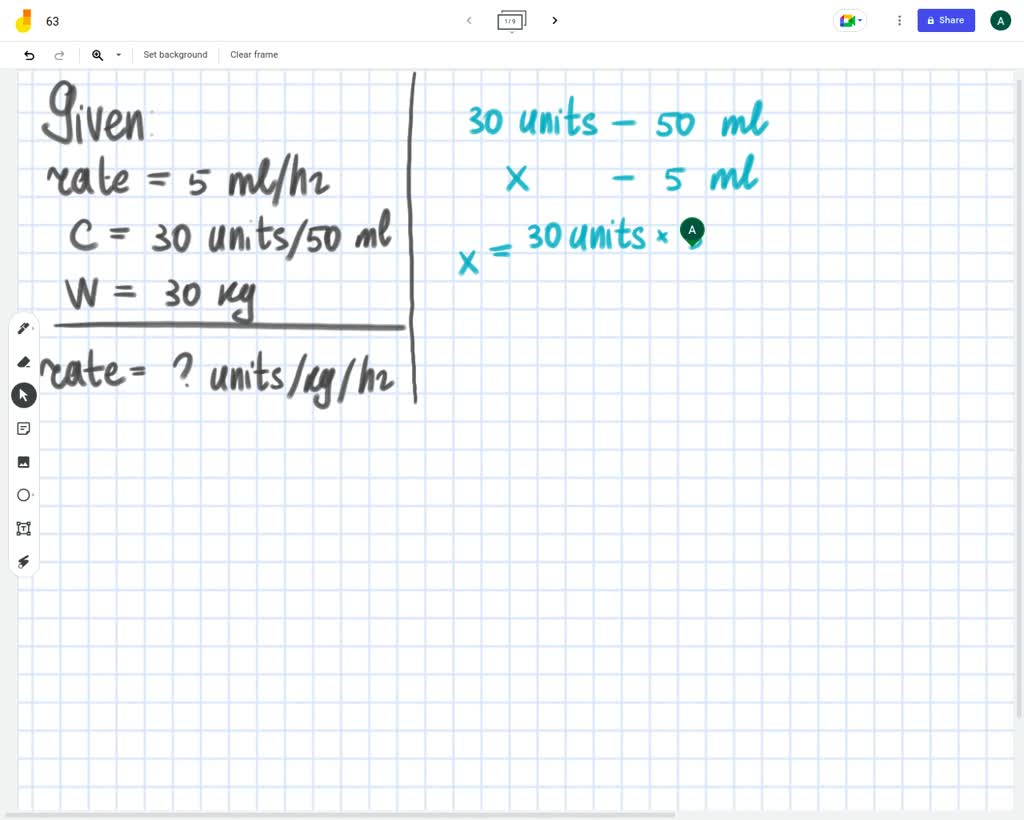 63
1/9
Share
A
Set background
Clear frame
Given:
rate = 5 ml/hr
C = 30 units/50 ml
W = 30 kg
rate = ? units/kg/hr
30 units - 50 ml
x - 5 ml
x = 30 units *
A